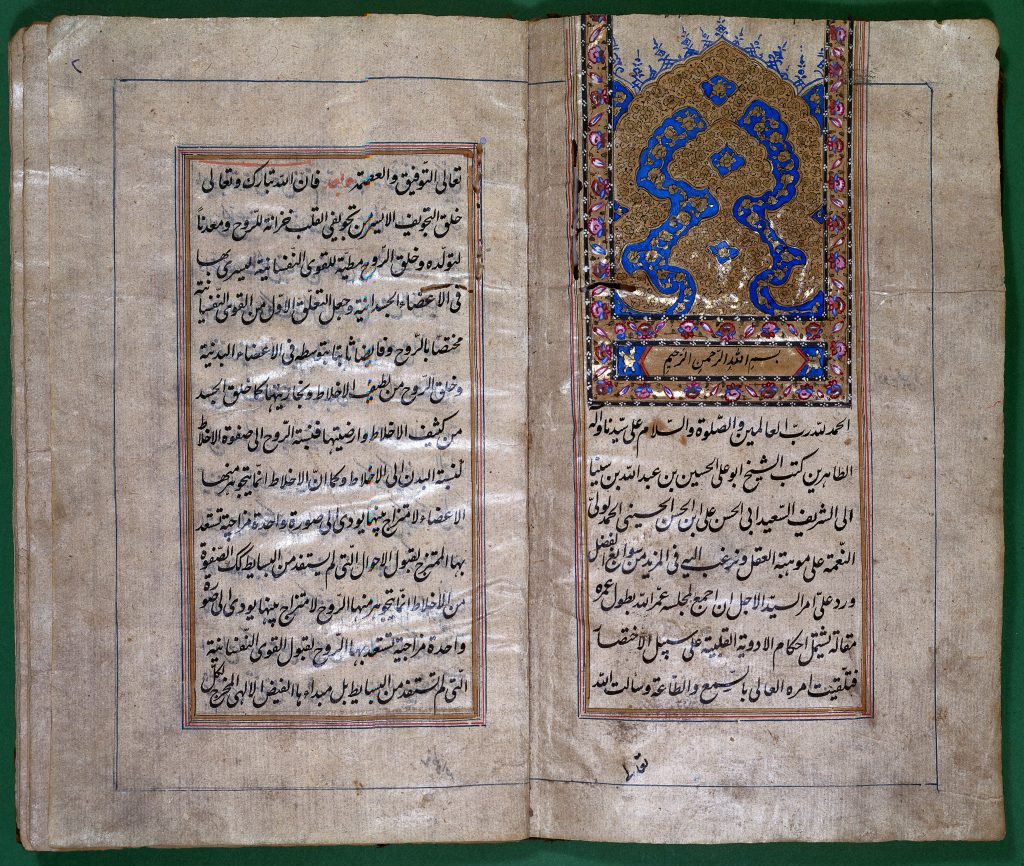 بسم الله الرحمن الرحيم
الحمد لله رب العالمين والصلوة والسلام على سيدنا وآله
الطاهرين كتب الشيخ ابو على الحسين بن عبد الله بن سينا
الى الشريف السعيد ابى الحسن على ابن الحسن الحسينى الحمد لولى
النعمة على موهبة العقل ونرغب اليه فى المزيد من سوابغ الفضل
ورد على امر السيد الاجل ان اجمع لمجلسه عمر الله بطول عمره
مقالة يشتمل احكام الادوية القلبية على سبيل الاختصار
فتلقيت امره العالى بالسمع والطاعة وسالت الله
تعالى
٢
تعالى التوفيق والعصمة وبعد فان الله تبارك وتعالى
خلق التجويف الايسر من تجويفى القلب خزانة للروح ومعدناً
لتولده وخلق الروح مطية للقوى النفسانية ليسرى بها
فى الاعضاء الجسدانية وجعل التعلق الاول من القوى النفسانية
مختصا بالروح وفايضا ثانيا بتوسطه فى الاعضاء البدنية
وخلق الروح من لطيف الاخلاط وبخاريتها كما خلق الجسد
من كثيف الاخلاط وارضيتها فنسبة الروح الى صفوة الاخلاط
كنسبة البدن الى الاخلاط وكما ان الاخلاط انما يتجوهر منها
الاعضاء لامتزاج بينها يودى الى صورة واحدة مزاجية تستعد
بها الممتزج لقبول الاحوال التى لم يستفد من البسايط كك الصفوة
من الاخلاط انما يتجوهر منها الروح لامتزاج بينها يودى الى صورة
واحدة مزاجية تستعد بها الروح لقبول القوى النفسانية
التى لم تستفد من البسايط بل مبداء ها الفيض الالهى المخرج لكل